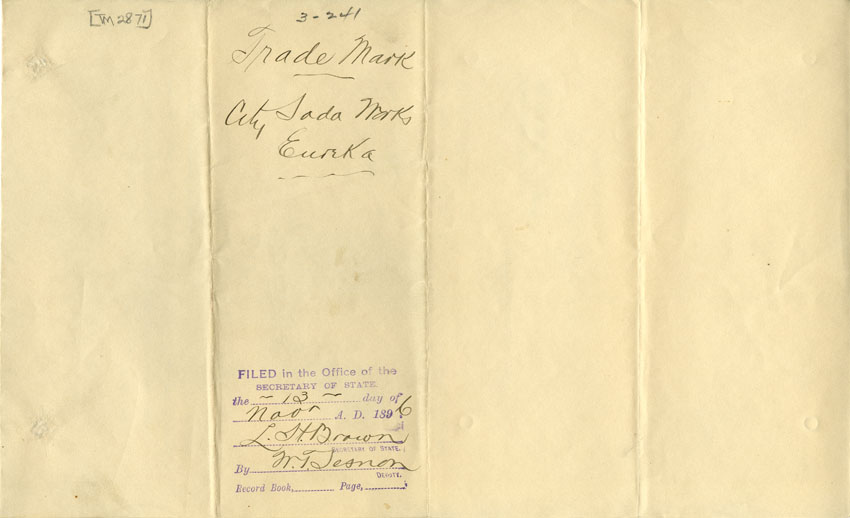 [TM 2871]
3-241
Trade Mark
City Soda Works
Eureka
FILED in the Office of the
SECRETARY OF STATE.
the - 13 - day of
Novr A. D. 1896
L. H. Brown
SECRETARY OF STATE.
By W. T.
DEPUTY.
Record Book, Page,